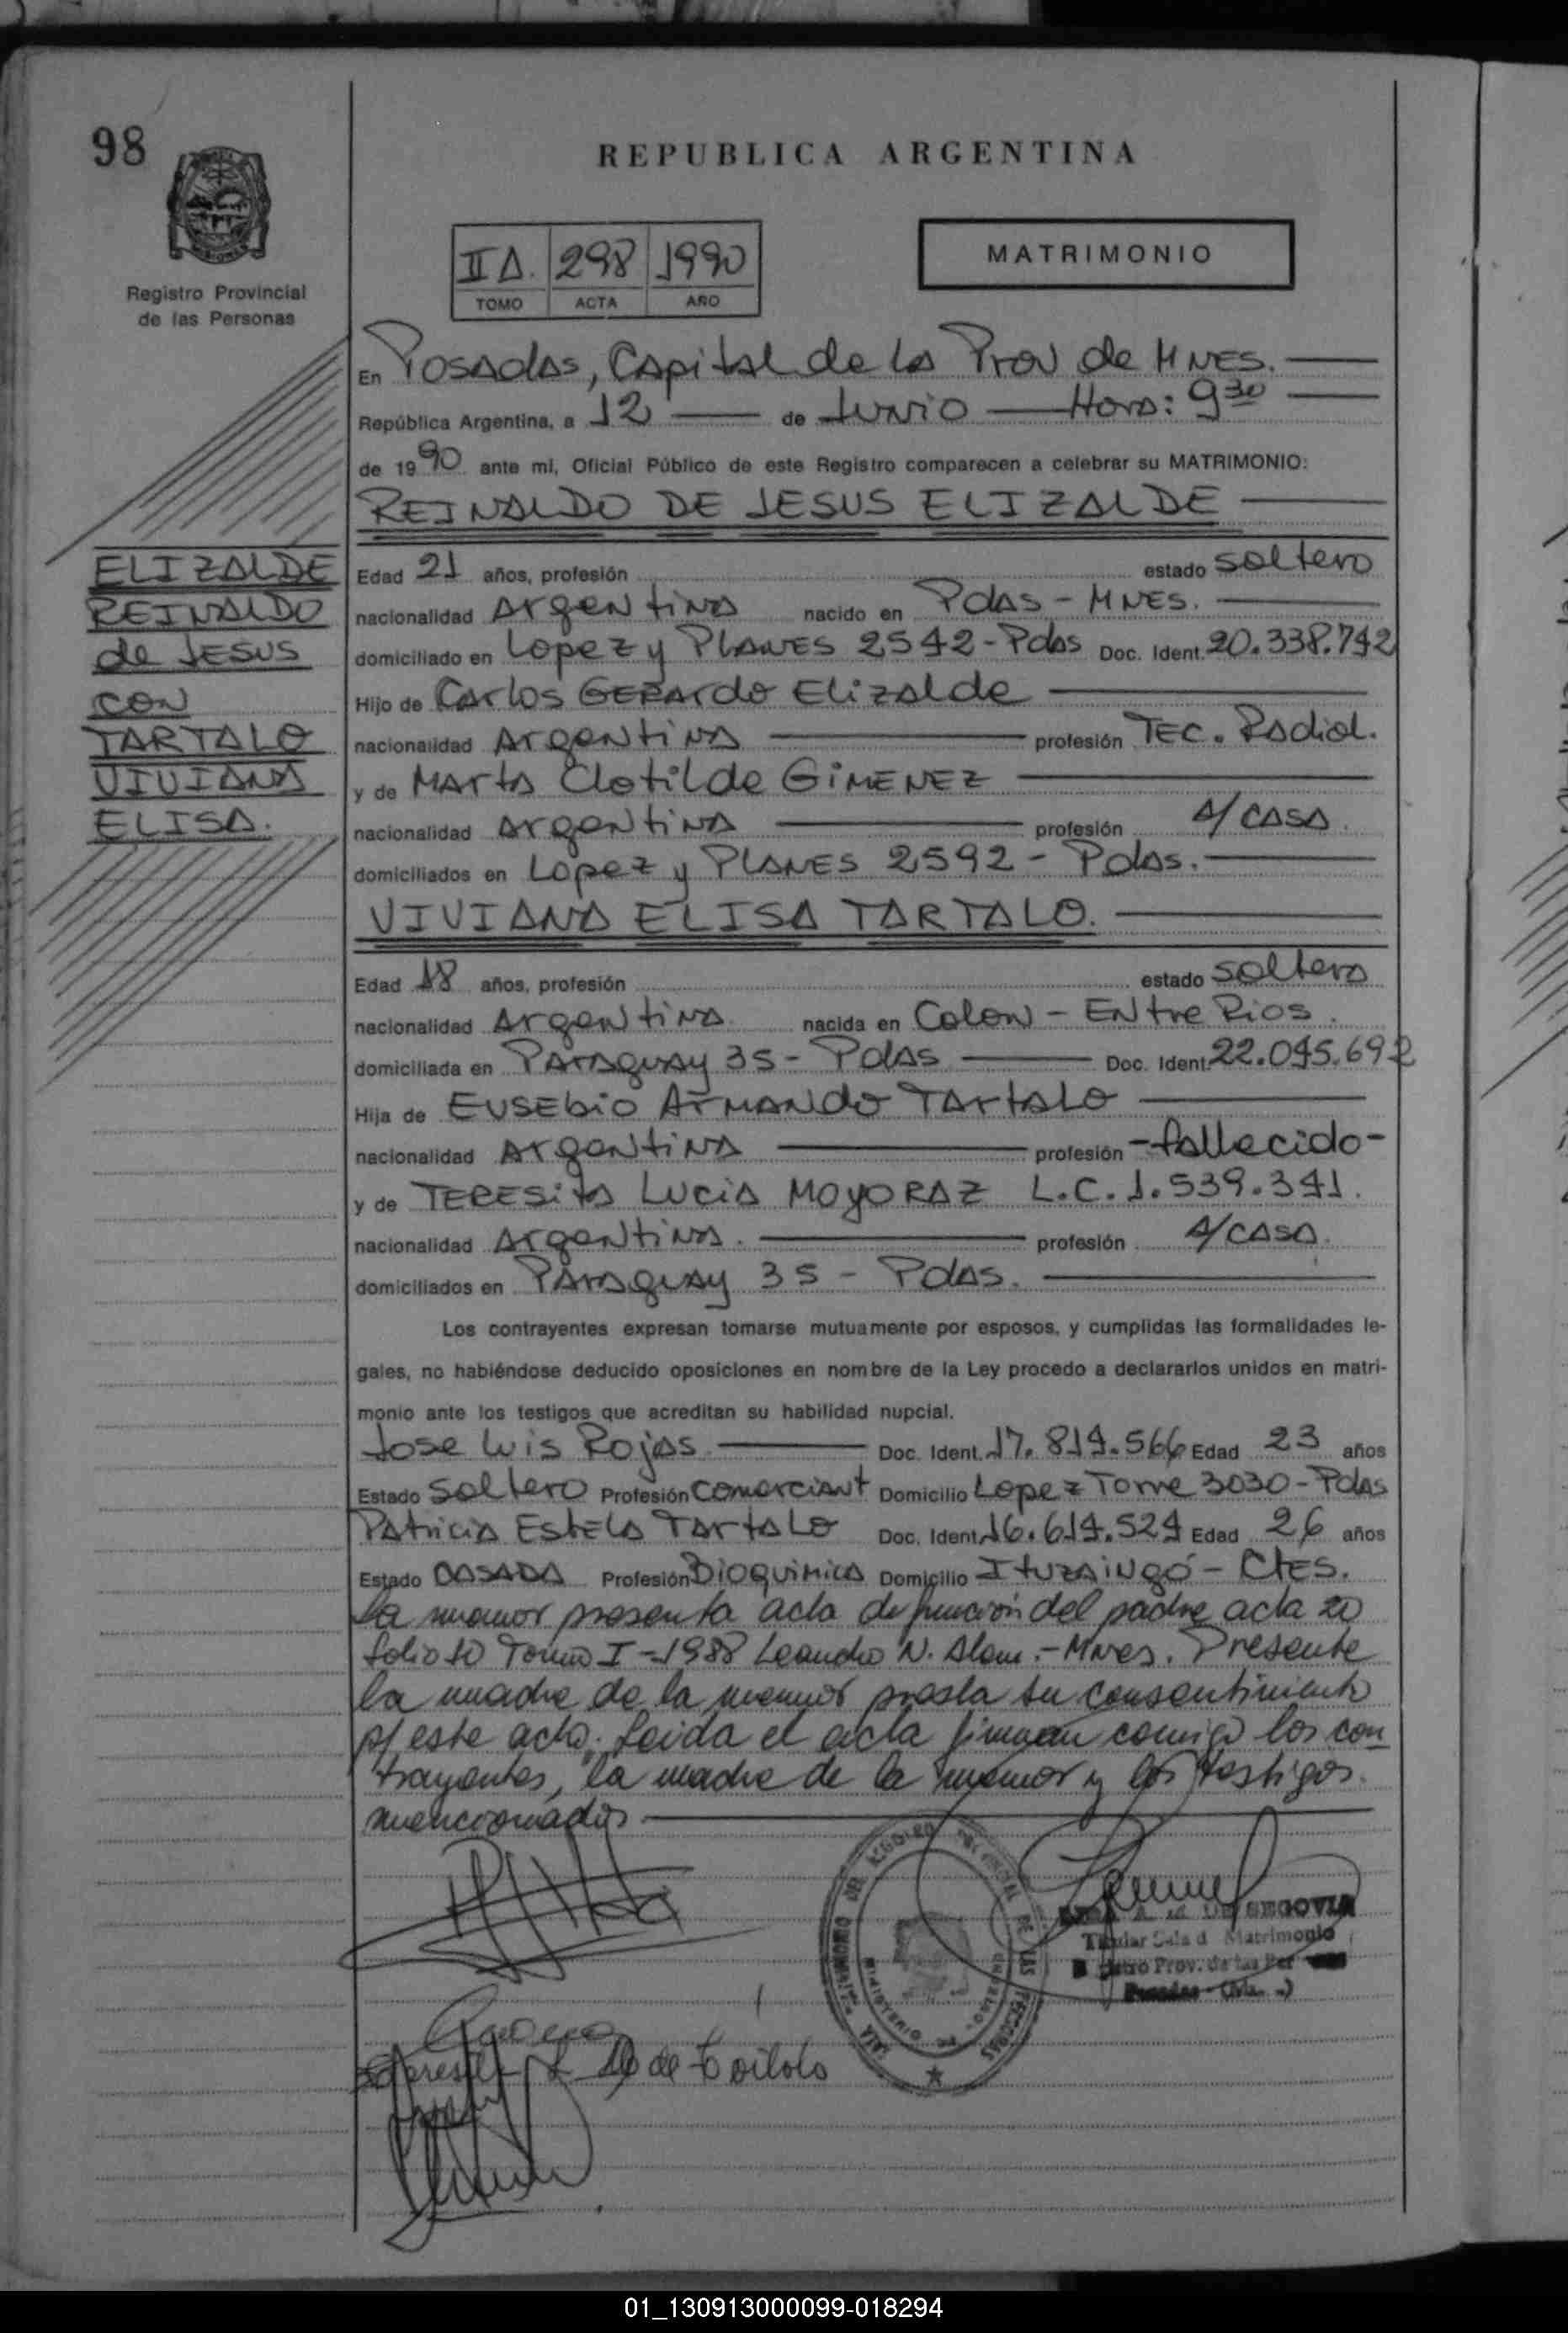 98
REPUBLICA ARGENTINA
Registro Provincial
de las Personas
II A. 298 1990
TOMO ACTA AÑO
MATRIMONIO
En Posadas, Capital de la Prov de MNES.
República Argentina, a 12 de Junio Hora: 9 30
de 1990 ante mi, Oficial Público de este Registro comparecen a celebrar su MATRIMONIO:
REINALDO DE JESUS ELIZALDE
ELIZALDE
REINALDO
de JESUS
CON
TARTALO
VIVIANA
ELISA.
Edad 21 años, profesión estado soltero
nacionalidad Argentina nacido en Pdas - MNES.
domiciliado en Lopez y PLANES 2542 - Pdas Doc. Ident. 20.338.742
Hijo de Carlos GERARdo Elizalde
nacionalidad Argentina profesión TEC. Radiol.
y de Marta Clotilde GIMENEZ
nacionalidad Argentina profesión A/ CASA.
domiciliados en Lopez y PLANES 2592 - Pdas.
VIVIANA ELISA TARTALO.
Edad 18 años, profesión estado soltera
nacionalidad Argentina. nacida en Colon - Entre Rios.
domiciliada en Paraguay 35 - Pdas Doc. Ident. 22.045.692
Hija de EUSEbio Armando Tartalo
nacionalidad Argentina profesión - fallecido -
y de TERESita Lucia MoyoRAZ L.C. 1.539.341.
nacionalidad Argentina. profesión A/CASA.
domiciliados en Paraguay 35 - Pdas.
Los contrayentes expresan tomarse mutuamente por esposos, y cumplidas las formalidades le-
gales, no habiéndose deducido oposiciones en nombre de la Ley procedo a declararlos unidos en matri-
monio ante los testigos que acreditan su habilidad nupcial.
Jose Luis Rojas Doc. Ident. 17.814.566 Edad 23 años
Estado Soltero Profesión Comerciant Domicilio Lopez Torre 3030 - Pdas
Patricia Estela Tartalo Doc. Ident. 16.614.524 Edad 26 años
Estado CASADA Profesión Bioquimica Domicilio Ituzaingó - CtES.
La menor presenta acta defunción del padre acta 20
folio 10 Tomo I - 1988 Leandro N. Alem. - Mnes. Presente
la madre de la menor presta su consentimiento
p/ este acto. Leida el acta firman comigo los con
trayentes, la madre de la menor y los testigos
mencionados
DE SEGOVIA
Titular Sala d Matrimonio
Prov. de las Per
Posadas
de Tartalo
01_130913000099-018294